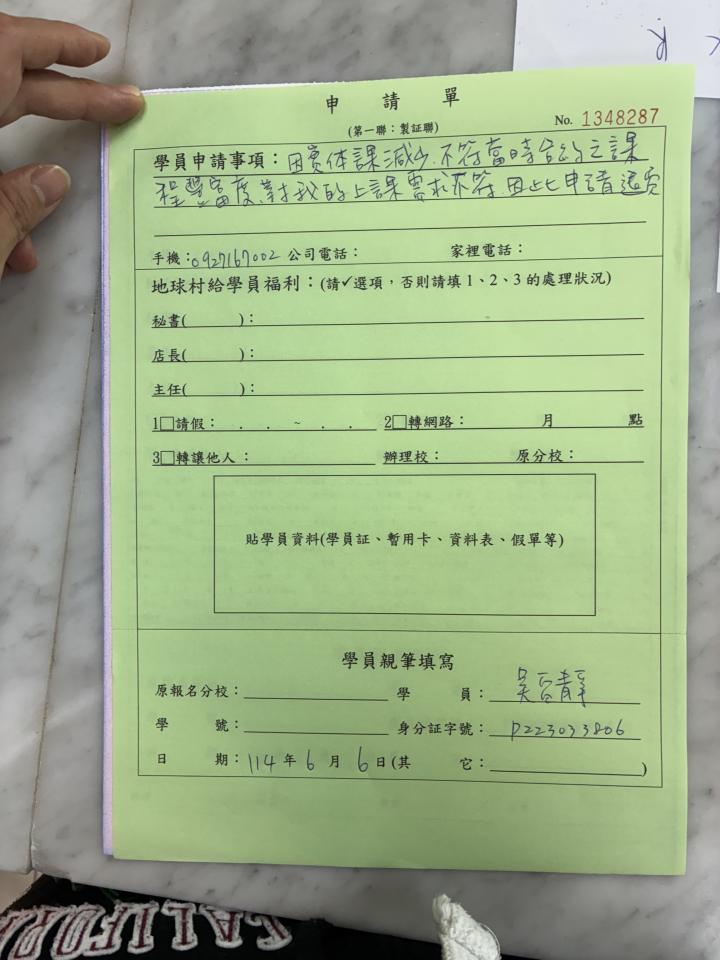 申請單
(第一聯：製証聯)
No. 1348287
學員申請事項：因實体課減少、不符當時合約之課
程豐富度、對我的上課需求不符 因此申請退費
手機：0927167002 公司電話： 家裡電話：
地球村給學員福利：(請✓選項，否則請填1、2、3的處理狀況)
秘書( )：
店長( )：
主任( )：
1□請假： . . ~ . . 2□轉網路： 月 點
3□轉讓他人： 辦理校： 原分校：
貼學員資料(學員証、暫用卡、資料表、假單等)
學員親筆填寫
原報名分校： 學員：吳百靜
學號： 身分証字號：P223033806
日期：114年6月6日(其它： )
CALIFOR